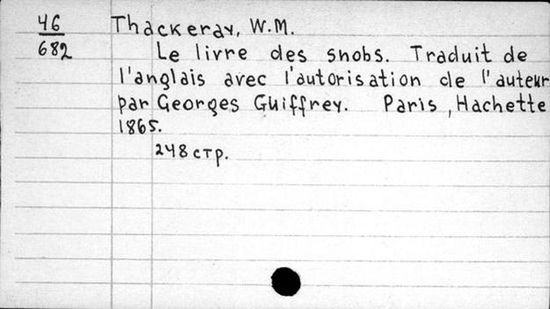 46
682
Thackeray, W.M.
Le livre des snobs. Traduit de
l'anglais avec l'autorisation de l'auteur
par Georges Guiffrey. Paris, Hachette
1865.
248 стр.